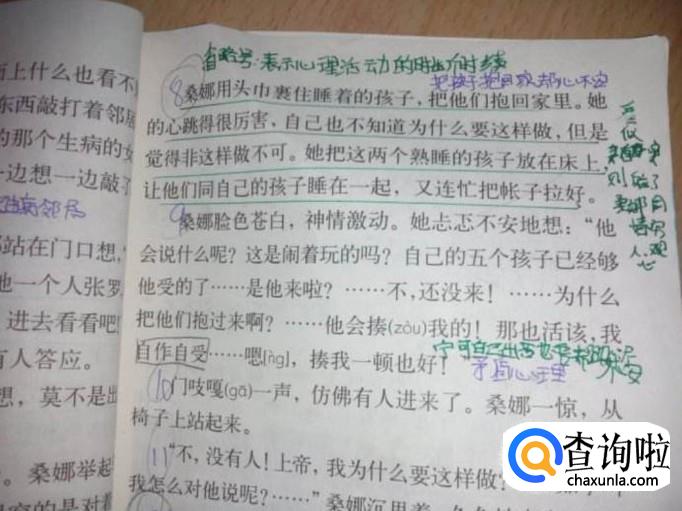 省略号:表示心理活动的时断时续
面上什么也看不
东西敲打着邻居
的那个生病的女
一边想一边敲了
站在门口想,“
他一个人张罗
进去看看吧!
有人答应。
想,莫不是出
。桑娜举起
8桑娜用头巾裹住睡着的孩子,把他们抱回家里。她
的心跳得很厉害,自己也不知道为什么要这样做,但是
觉得非这样做不可。她把这两个熟睡的孩子放在床上,
让他们同自己的孩子睡在一起,又连忙把帐子拉好。
9桑娜脸色苍白,神情激动。她忐忑不安地想:“他
会说什么呢?这是闹着玩的吗?自己的五个孩子已经够
他受的了……是他来啦?……不,还没来!……为什么
把他们抱过来啊?……他会揍(zòu)我的!那也活该,我
自作自受……嗯[ǹg],揍我一顿也好!”
矛盾心理
10门吱嘎(gā)一声,仿佛有人进来了。桑娜一惊,从
椅子上站起来。
11“不,没有人!上帝,我为什么要这样做?
我怎么对他说呢?……”桑娜沉思着,
查询啦
chaxunla.com